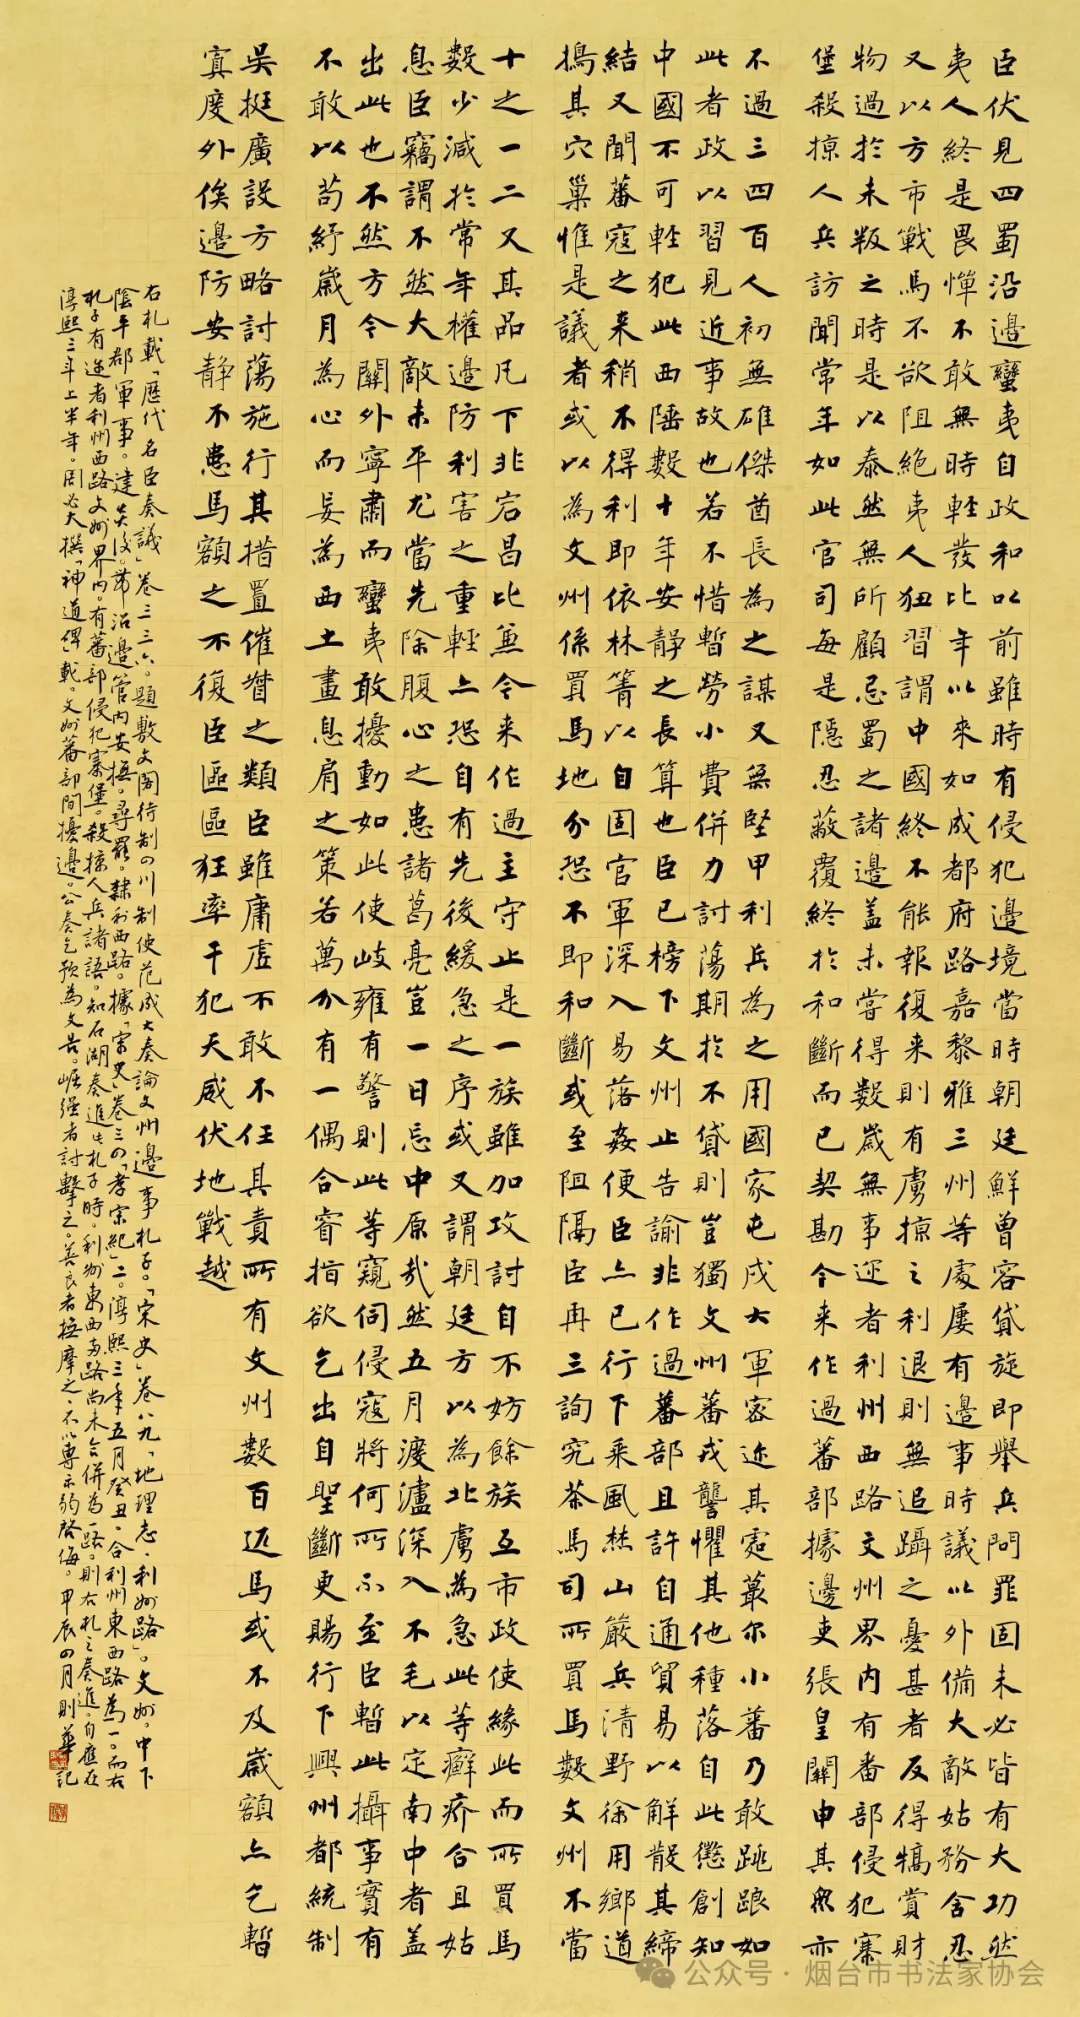 臣伏見四蜀沿邊蠻夷自政和以前雖時有侵犯邊境當時朝廷鮮曾容貸旋即舉兵問罪固未必皆有大功然
夷人終是畏憚不敢無時輕發比年以來如成都府路嘉黎雅三州等處屢有邊事時議以外備大敵姑務含忍
又以方市戰馬不欲阻絕夷人狃習謂中國終不能報復来則有虜掠之利退則無追躡之憂甚者反得犒賞財
物過於未叛之時是以泰然無所顧忌蜀之諸邊盖未嘗得數歲無事迩者利州西路文州界内有番部侵犯寨
堡殺掠人兵訪聞常年如此官司每是隱忍蔽覆終於和斷而已契勘今来作過蕃部據邊吏張皇關申其衆亦
不過三四百人初無雄傑酋長為之謀又無堅甲利兵為之用國家屯戍大軍密迩其処蕞尔小蕃乃敢跳踉如
此者政以習見近事故也若不惜暫勞小費併力討蕩期於不貸則豈獨文州蕃戎讋懼其他種落自此懲創知
中國不可輕犯此西陲數十年安靜之長算也臣已榜下文州止告諭非作過蕃部且許自通貿易以解散其締
結又聞蕃寇之来稍不得利即依林箐以自固官軍深入易落姦便臣亦已行下乘風焚山嚴兵清野徐用鄉道
搗其穴巢惟是議者或以為文州係買馬地分恐不即和斷或至阻隔臣再三詢究茶馬司所買馬數文州不當
十之一二又其品凡下非宕昌比兼今来作過主守止是一族雖加攻討自不妨餘族互市政使緣此而所買馬
數少減於常年權邊防利害之重輕亦恐自有先後緩急之序或又謂朝廷方以為北虜為急此等癬疥合且姑
息臣竊謂不然大敵未平尤當先除腹心之患諸葛亮豈一日忘中原哉然五月渡瀘深入不毛以定南中者盖
出此也不然方今關外寧肅而蠻夷敢擾動如此使岐雍有警則此等窺伺侵寇將何所不至臣暫此攝事實有
不敢以苟紓歲月為心而妄為西土畫息肩之策若萬分有一偶合睿指欲乞出自聖斷更賜行下興州都統制
吳挺廣設方略討蕩施行其措置催督之類臣雖庸虛不敢不任其責所有文州數百匹馬或不及歲額亦乞暫
寘度外俟邊防安靜不患馬額之不復臣區區狂率干犯天威伏地戰越
右札載「歷代名臣奏議」卷三三六。題敷文閣待制四川制使范成大奏論文州邊事札子。「宋史」卷八九「地理志·利州路」。文州。中下
陰平郡軍事。建炎後。帶沿邊管内安撫。尋罷。隸利西路。據「宋史」卷三四「孝宗紀」二。淳熙三年五月癸丑。合利州東西路為一。而右
札子有迩者利州西路文州界内。有蕃部侵犯寨堡。殺掠人兵諸語。知石湖奏進此札子時。利州東西两路尚未合併為一路。則右札之奏進。自應在
淳熙三年上半年。周必大撰「神道碑」載。文州蕃部間擾邊。公奏乞預為文告。崛强者討擊之。善良者撫摩之。不以專示弱啓侮。甲辰四月則華記
公众号·烟台市书法家协会